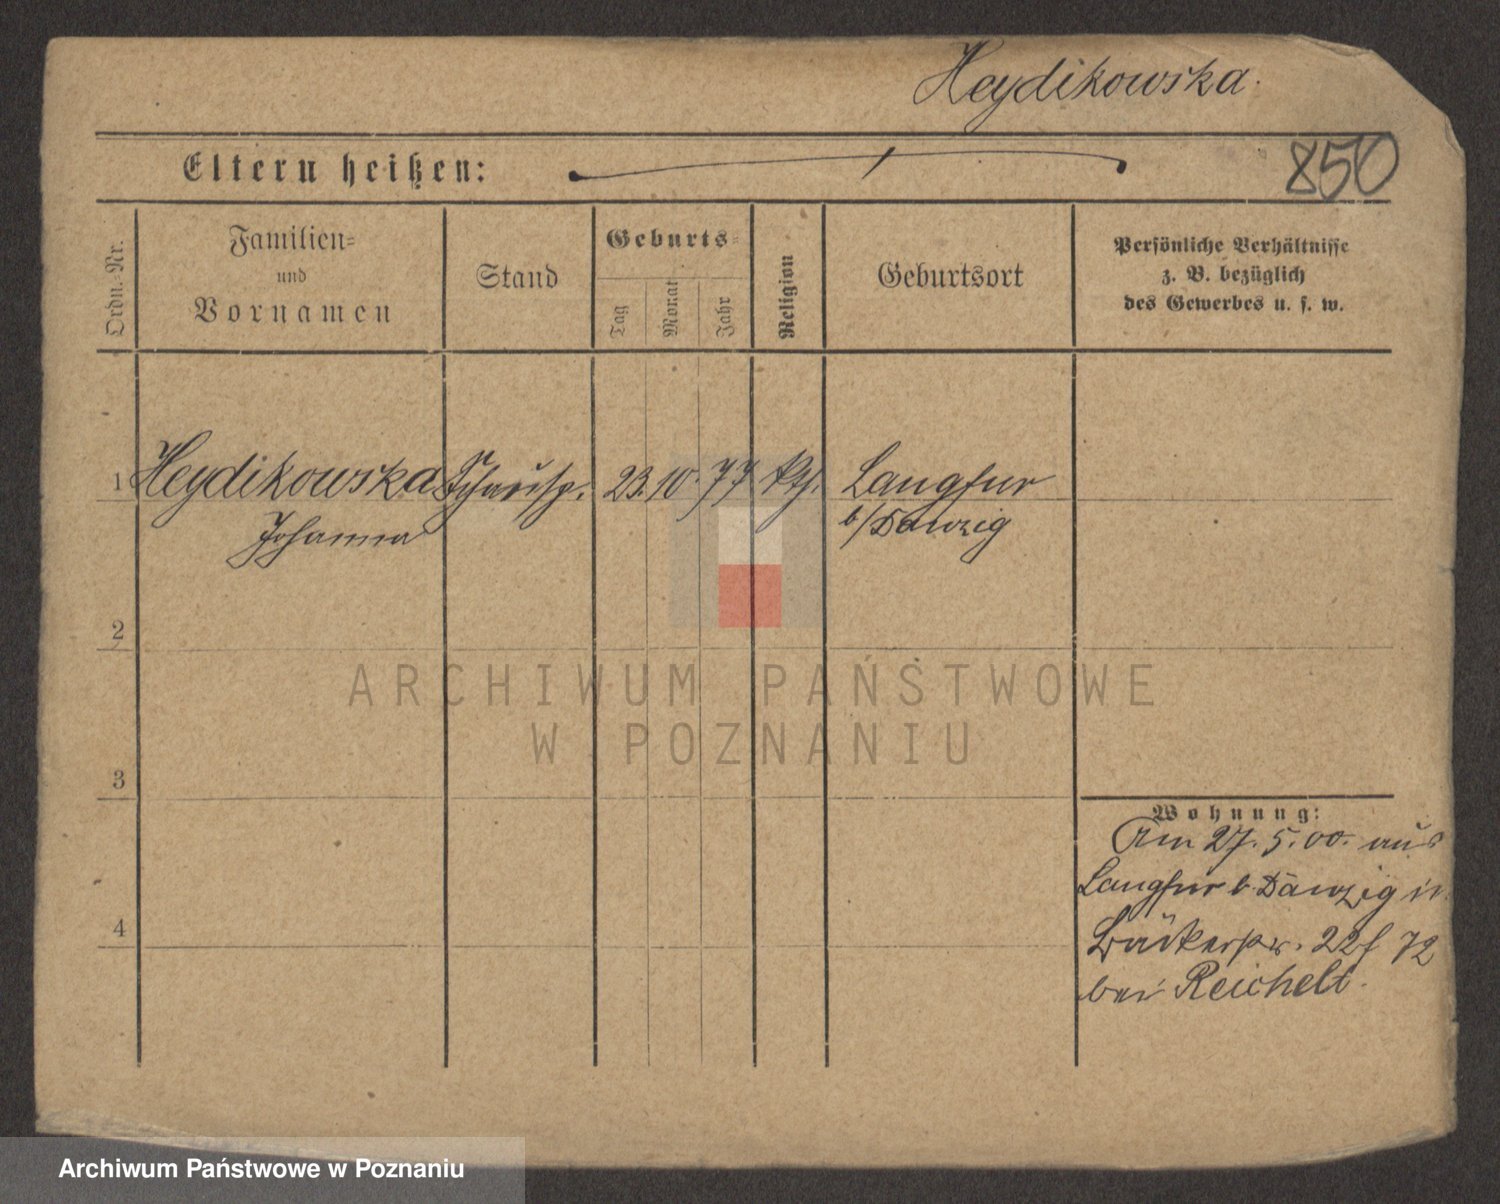 Heydikowska.
Eltern heißen:
850
Ordn.-Nr.
Familien-
und
Vornamen
Stand
Geburts-
Tag
Monat
Jahr
Religion
Geburtsort
Persönliche Verhältnisse
z. B. bezüglich
des Gewerbes u. s. w.
1 Heydikowska Schausp. 23. 10. 77 kth. Langfur
Johanna b/Danzig
2
ARCHIWUM PAŃSTWOWE
W POZNANIU
3
Wohnung:
Am 27. 5. 00. aus
Langfur b. Danzig n.
4
Bäckerstr. 22 f 72
bei Reichelt.
Archiwum Państwowe w Poznaniu